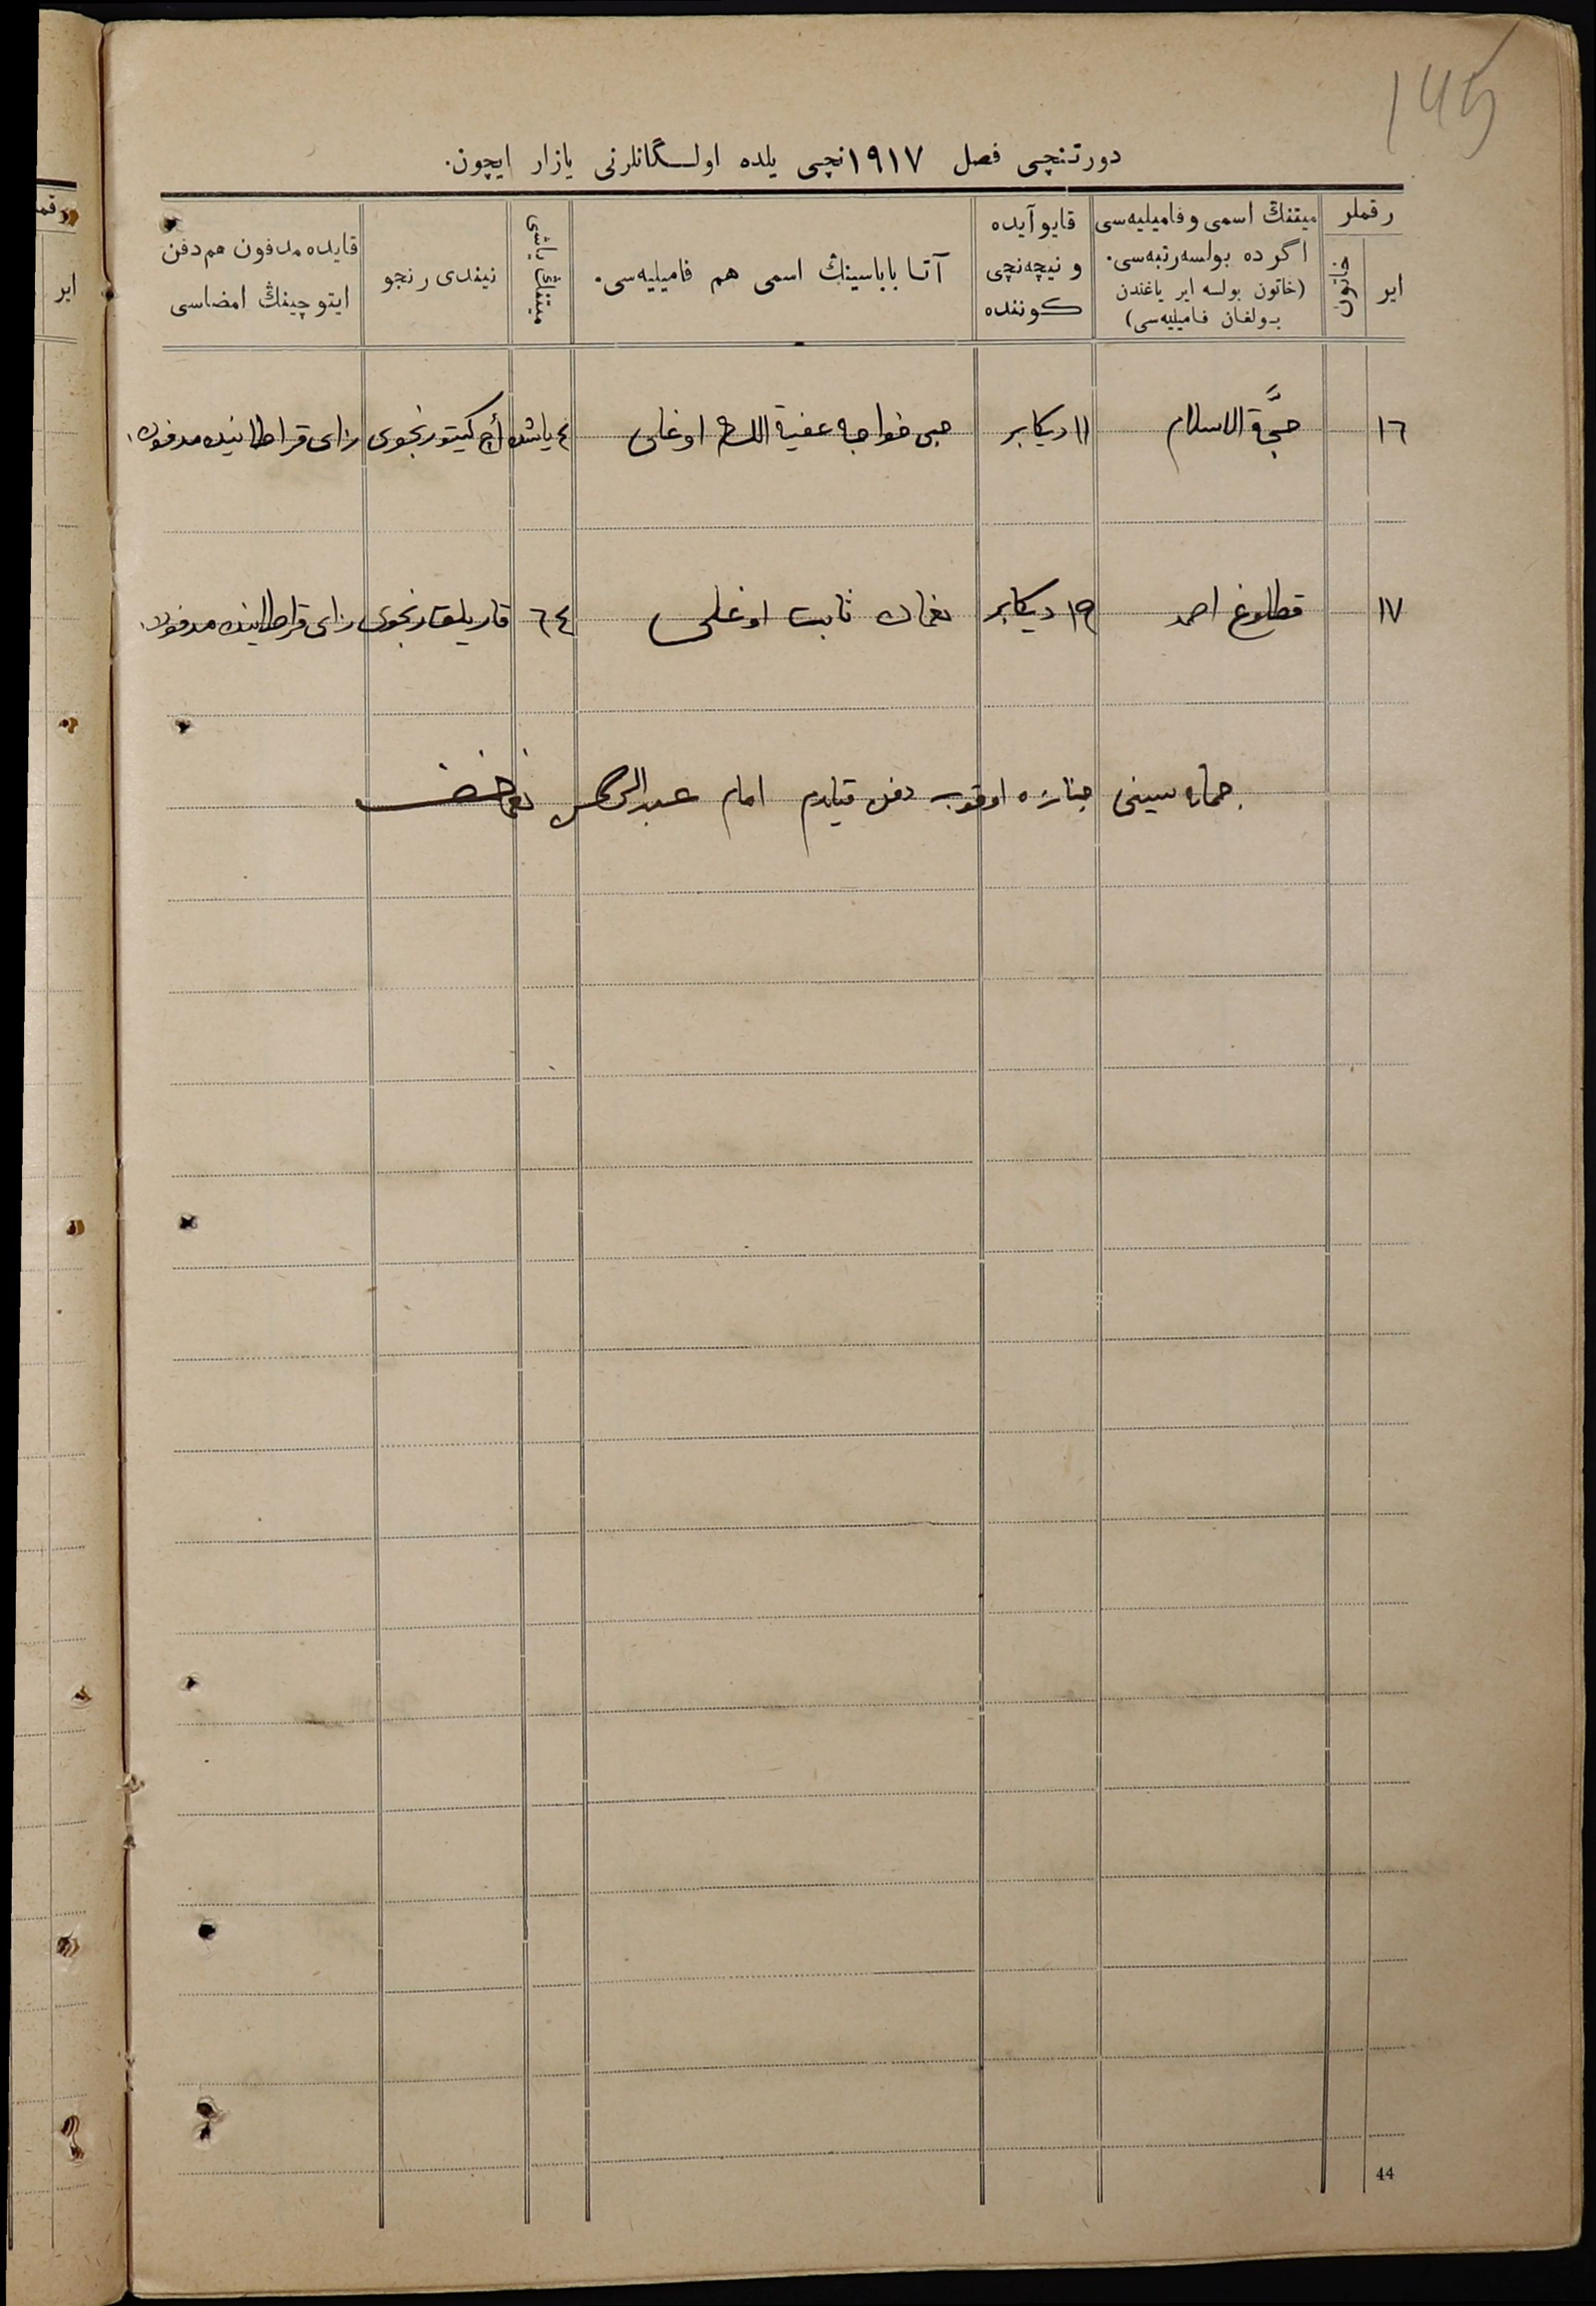 145
دورتنچی فصل ۱۹۱۷نچی یلده اولـگانلرنی یازار ایچون.
رقملر
ایر
خاتون
میتنڭ اسمی و فامیلیه‌سی
اگر ده بولسه رتبه‌سی.
(خاتون بولسه ایر یاغندن
بولغان فامیلیه‌سی)
قایو آیده
و نیچه‌نچی
کوننده
آتا باباسینڭ اسمی هم فامیلییه‌سی.
میتنڭ یاشی
نیندی رنجو
قایده مدفون هم دفن
ایتوچینڭ امضاسی
١٦ حجَّة الاسلام ١١ دیکابر حبی خواجه اوغلی ٤ یاشده أچ کیتو رنجوی قراطاینده مدفون
١٧ قطلوغ احمد ١٩ دیکابر نعمان ثابت اوغلی ٦٤ قاریلق رنجوی قراطاینده مدفون
جنازه اوقوب دفن قیلدم امام عبدالرحمن
رقملر
ایر
44